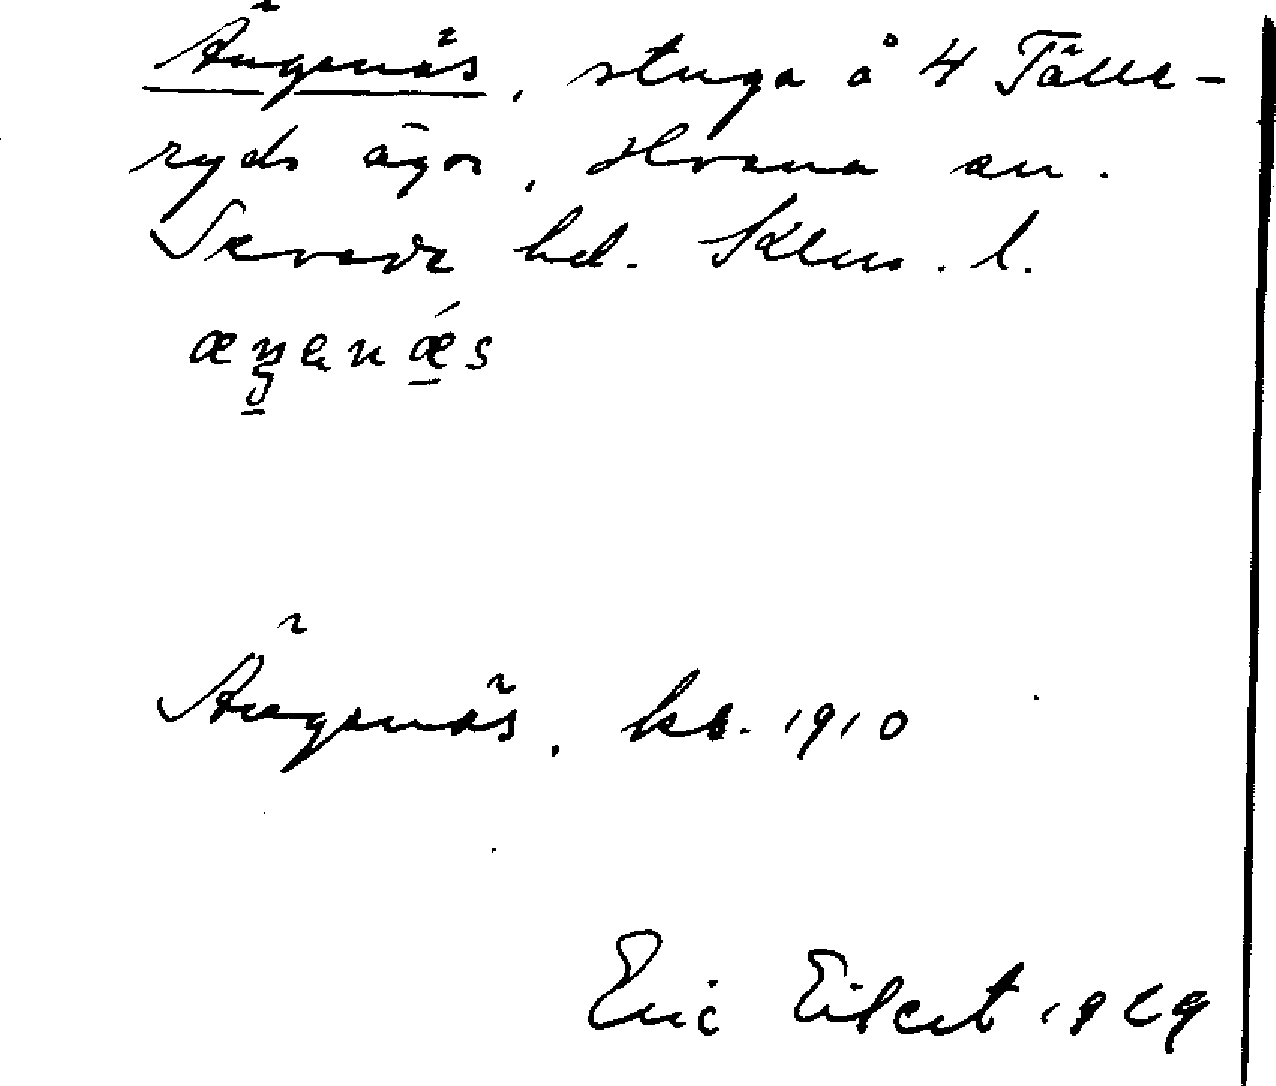 Ängenäs, stuga å 4 Tälle-
ryds ägor, Horna sn.
Sevede hd. Klm. l.
Ängenäs, ks. 1910
Eric Eilert 1929